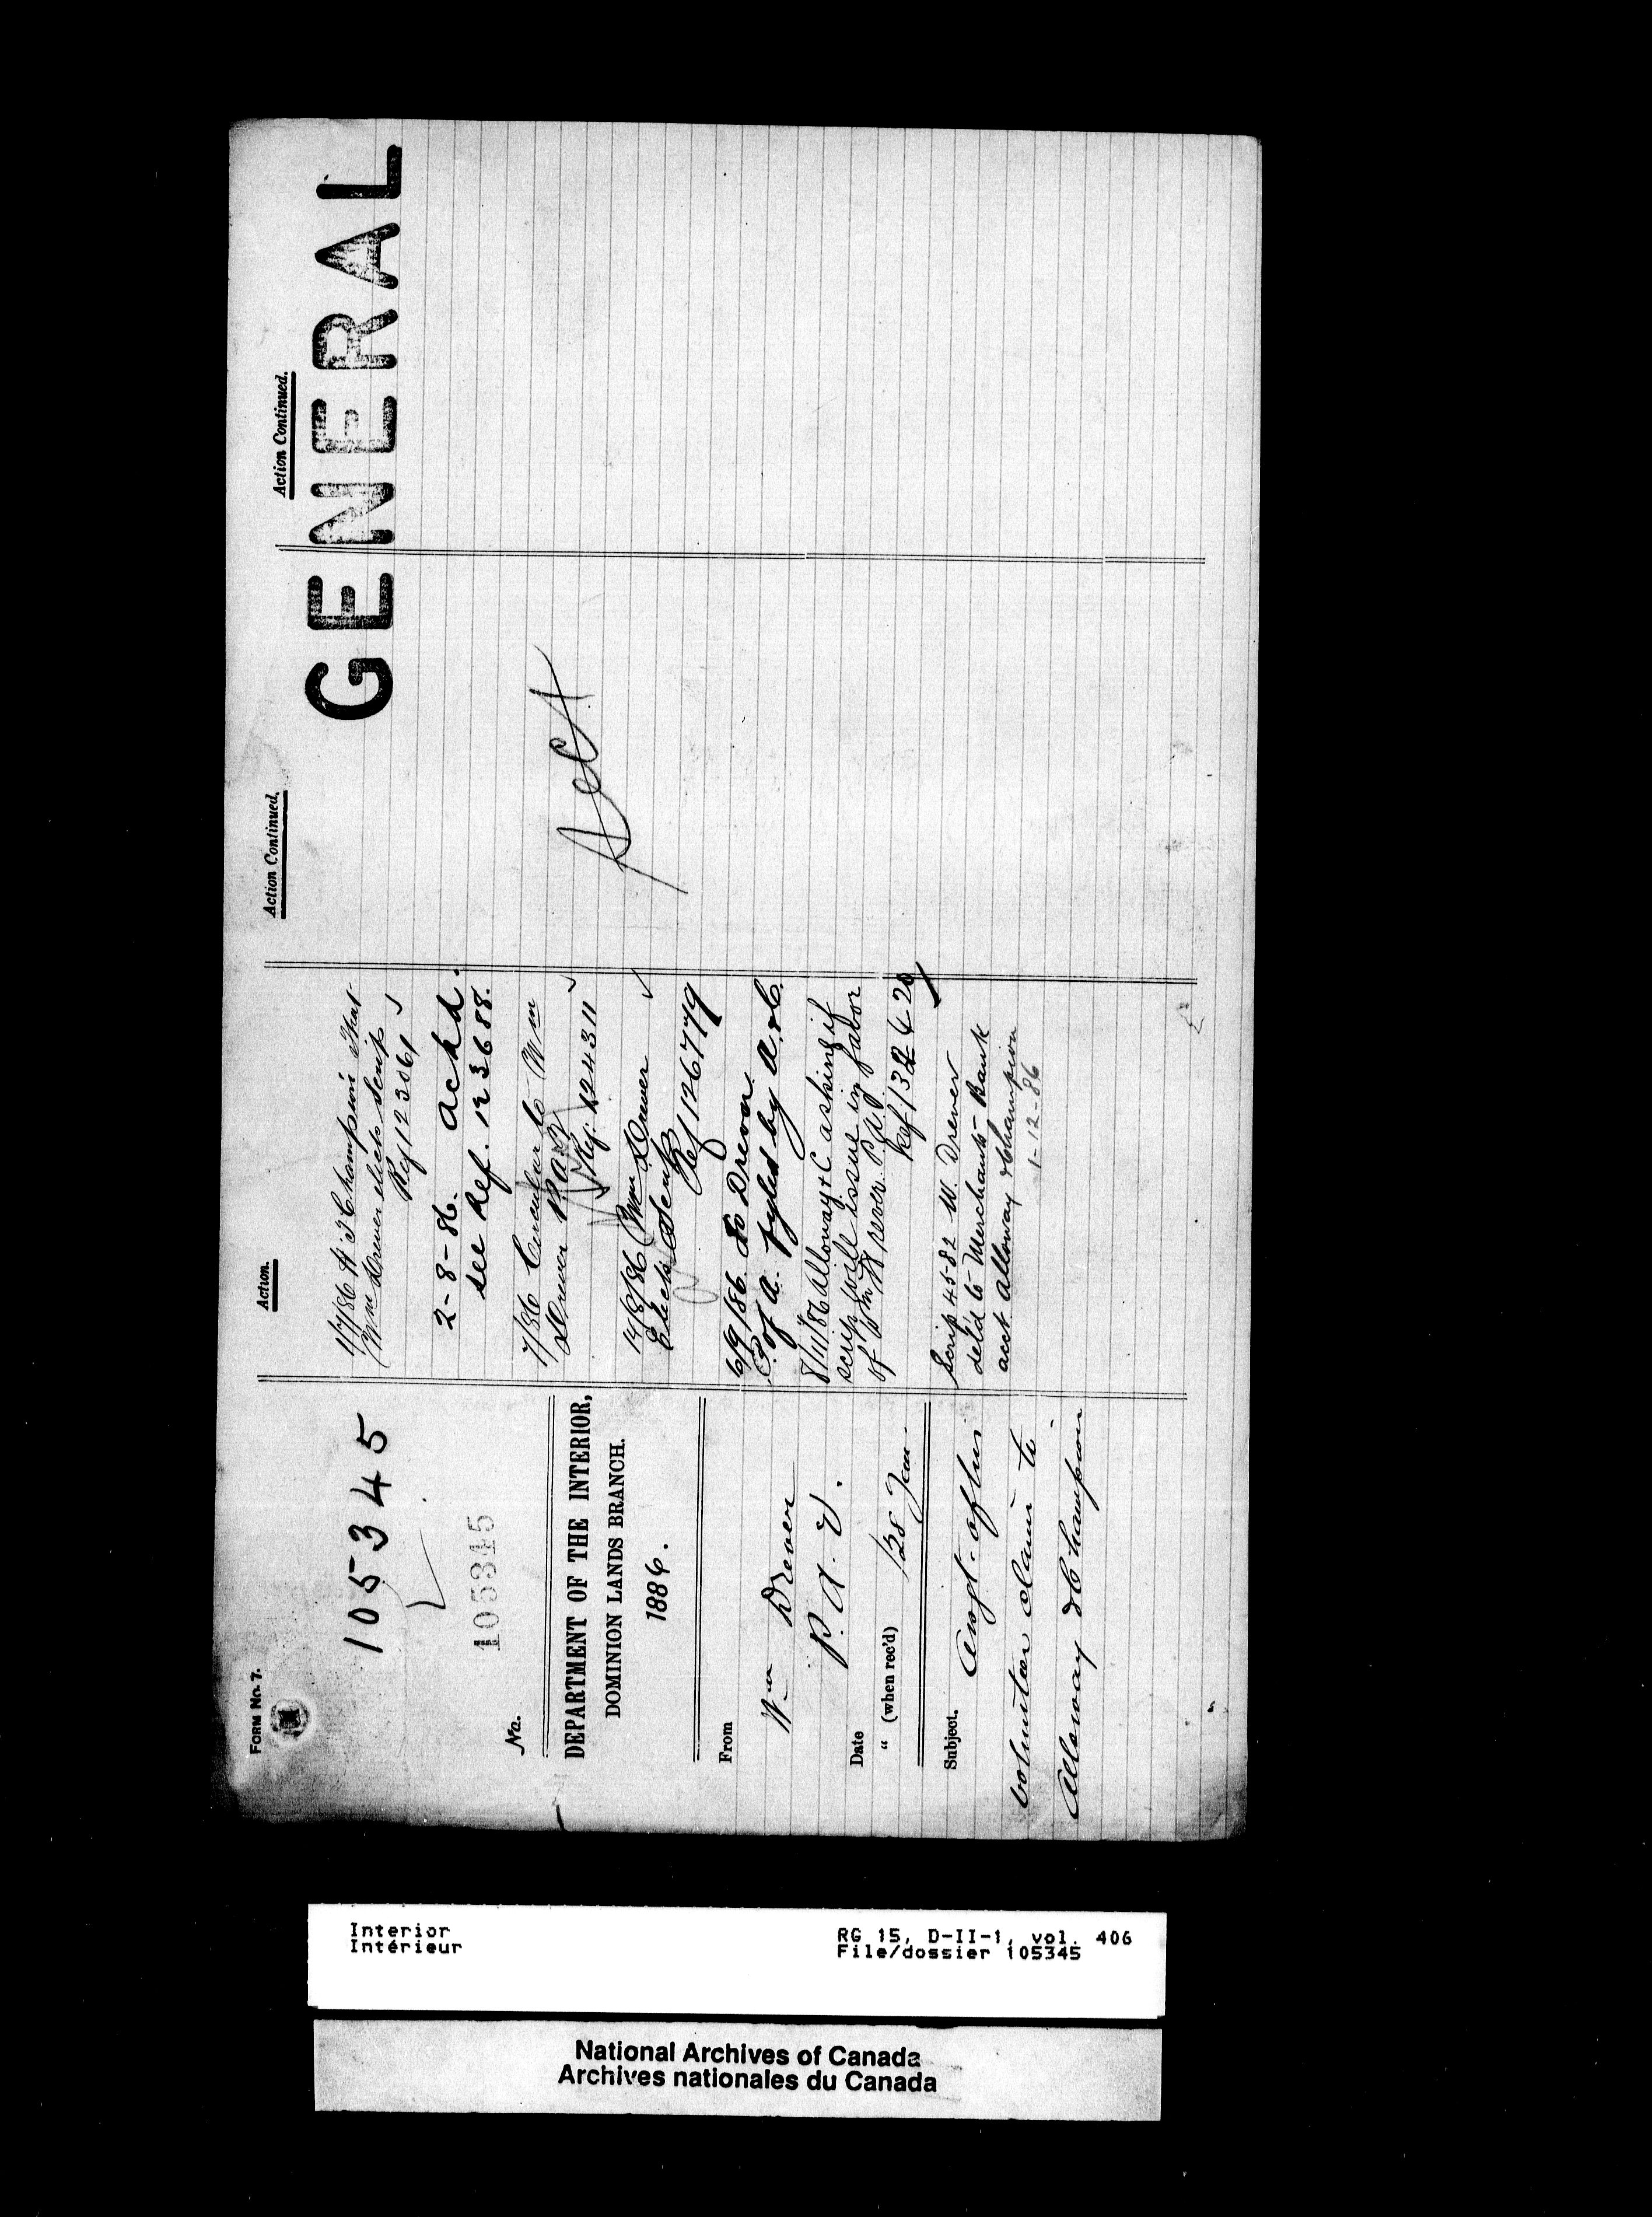 FORM No. 7.
105345
105345
No.
DEPARTMENT OF THE INTERIOR,
DOMINION LANDS BRANCH.
1886.
From
Wm Drever
P. A. V.
Date
" (when rec'd) 28 Jan.
Subject.
Assgt. of his
volunteer claim to
Alloway & Champion
Action.
1/7/86 H. T. Champion that
Wm Drever elects scrip
Ref 123061
2-8-86. Ackd.
see Ref. 123688.
7/86 Circular to Wm
Drever
Ref: 124311
14/8/86 Wm Drever
Elects Scrip
Ref 126779
6/9/86. Do Drever
P of A. fyled by A. & C.
8/11/86 Alloway & C asking if
scrip will issue in favor
of Wm Drever. P.A.V.
Ref 132420
Scrip 4582 W. Drever
del'd to Merchants Bank
acct. Alloway & Champion
1-12-86
Action Continued.
Action Continued.
GENERAL
Interior
Intérieur
RG 15, D-II-1, vol. 406
File/dossier 105345
National Archives of Canada
Archives nationales du Canada